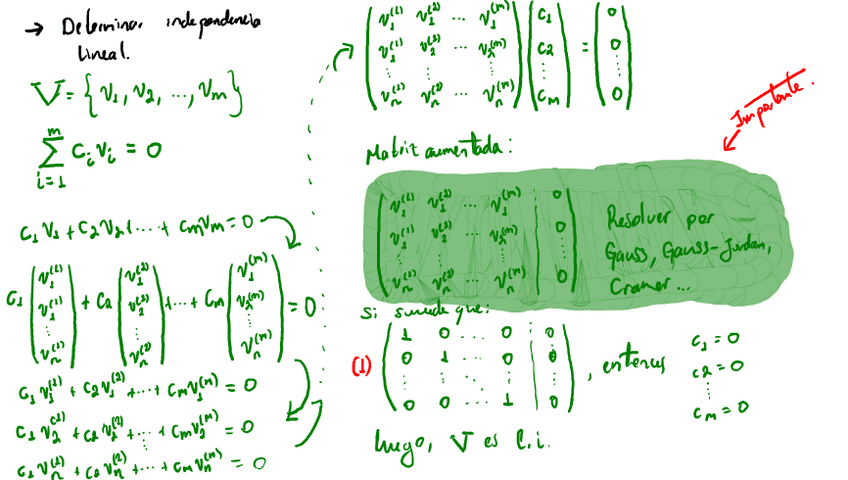 → Determinar independencia
lineal.
V = { v₁, v₂, ..., vₘ }
m
∑ cᵢ vᵢ = 0
i=1
c₁ v₁ + c₂ v₂ + ... + cₘ vₘ = 0
c₁ ( v₁⁽¹⁾ v₁⁽¹⁾ ⋮ vₙ⁽¹⁾ ) + c₂ ( v₁⁽²⁾ v₂⁽²⁾ ⋮ vₙ⁽²⁾ ) + ... + cₘ ( v₁⁽ᵐ⁾ v₂⁽ᵐ⁾ ⋮ vₙ⁽ᵐ⁾ ) = 0
c₁ v₁⁽¹⁾ + c₂ v₁⁽²⁾ + ... + cₘ v₁⁽ᵐ⁾ = 0
c₁ v₂⁽¹⁾ + c₂ v₂⁽²⁾ + ... + cₘ v₂⁽ᵐ⁾ = 0
⋮
c₁ vₙ⁽¹⁾ + c₂ vₙ⁽²⁾ + ... + cₘ vₙ⁽ᵐ⁾ = 0
v₁⁽¹⁾ v₁⁽²⁾ ... v₁⁽ᵐ⁾ c₁ 0
v₁⁽¹⁾ v₂⁽²⁾ ... v₂⁽ᵐ⁾ c₂ = 0
⋮ ⋮ ⋮ ⋮ ⋮
vₙ⁽¹⁾ vₙ⁽²⁾ ... vₙ⁽ᵐ⁾ cₘ 0
Importante.
Matriz aumentada:
v₁⁽¹⁾ v₁⁽²⁾ ... v₁⁽ᵐ⁾ ⋮ 0
v₁⁽¹⁾ v₂⁽²⁾ ... v₂⁽ᵐ⁾ ⋮ 0
⋮ ⋮ ⋮ ⋮ ⋮
vₙ⁽¹⁾ vₙ⁽²⁾ ... vₙ⁽ᵐ⁾ ⋮ 0
Resolver por
Gauss, Gauss-Jordan,
Cramer...
Si sucede que:
1 0 ... 0 ⋮ 0
(1) 0 1 ... 0 ⋮ 0 , entonces
⋮ ⋮ ⋱ ⋮ ⋮
0 0 ... 1 ⋮ 0
c₁ = 0
c₂ = 0
⋮
cₘ = 0
luego, V es l.i.